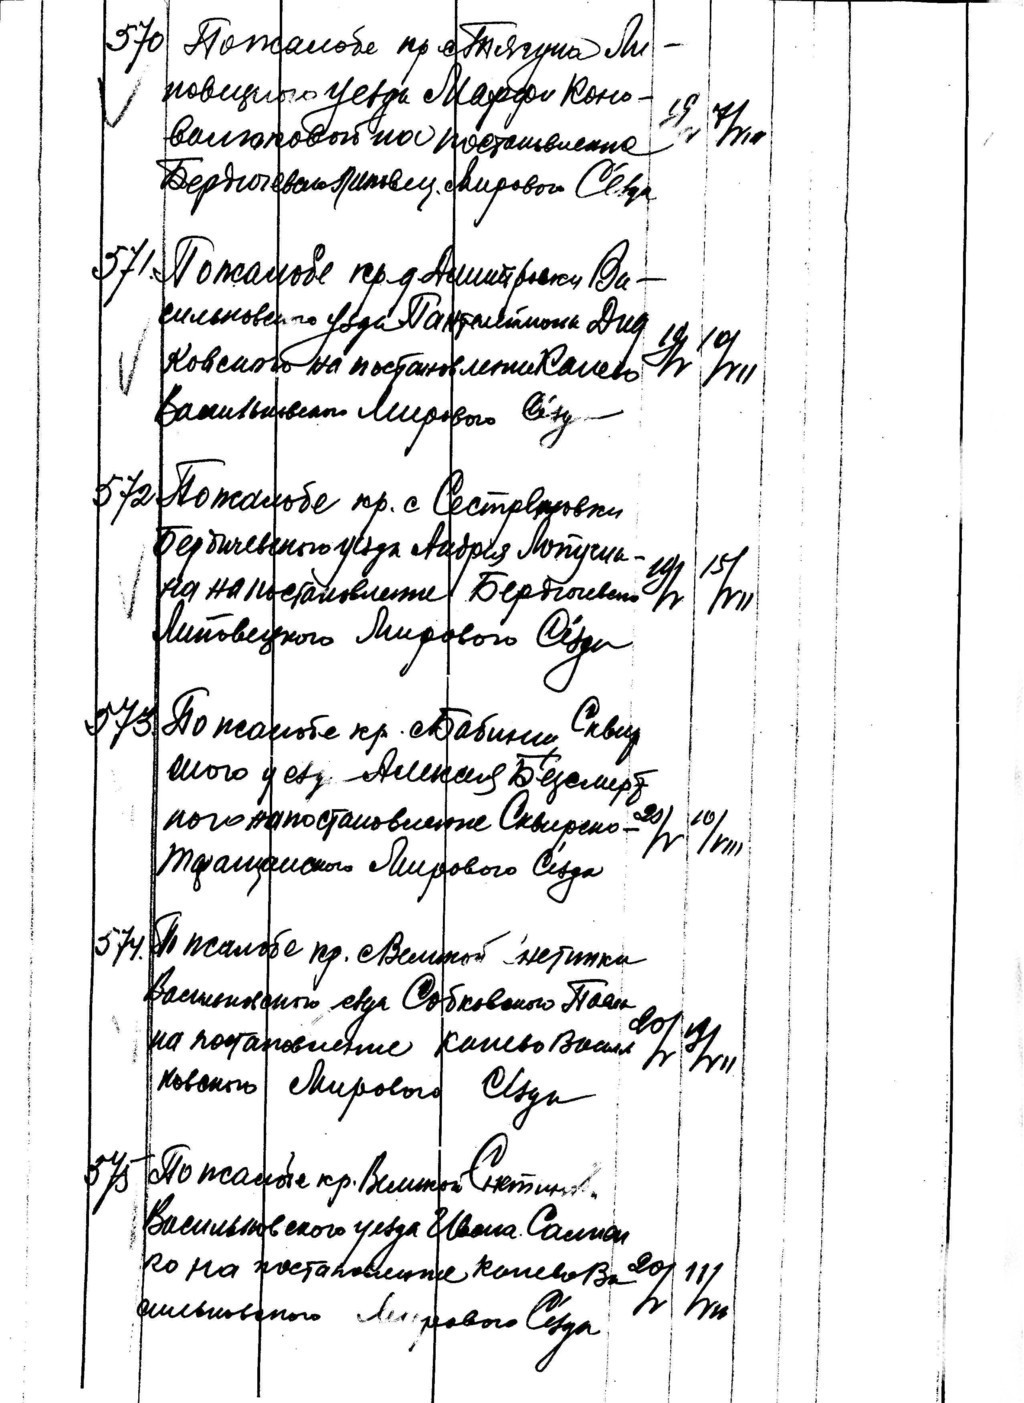 570 По жалобе кр. с Тягуна Ли-
повецкого уезда Марфы Коно-
валюковой на постановление 19/V 7/VII
Бердичевско Липовец. Мирового Съезда
571. По жалобе кр. д Дмитровки Ва-
сильковского уезда Пантелеймона Дид
ковского на постановление Канево 19/V 10/VII
Васильковского Мирового Съезд
572 По жалобе кр. с Сестреновки
Бердичевского уезда Андрея
на на постановление Бердичевско 19/V 15/VII
Липовецкого Мирового Съезда
573. По жалобе кр. с Бабинцы Сквир
ского уезд Алексея Безсмерт
ного на постановление Сквирско- 20/V 10/VIII
Таращанского Мирового Съезда
574. П жалобе кр. с Великой нетинки
Васильковского езда Собковского Павл
на постановление Канево Васил 20/V 19/VII
ковского Мирового Съезда
575 По жалобе кр. Великой Снетинк
Васильковского уезда Ивана
го на постановление Канево Ва 20/V 11/VII
сильковского Мирового Съезда